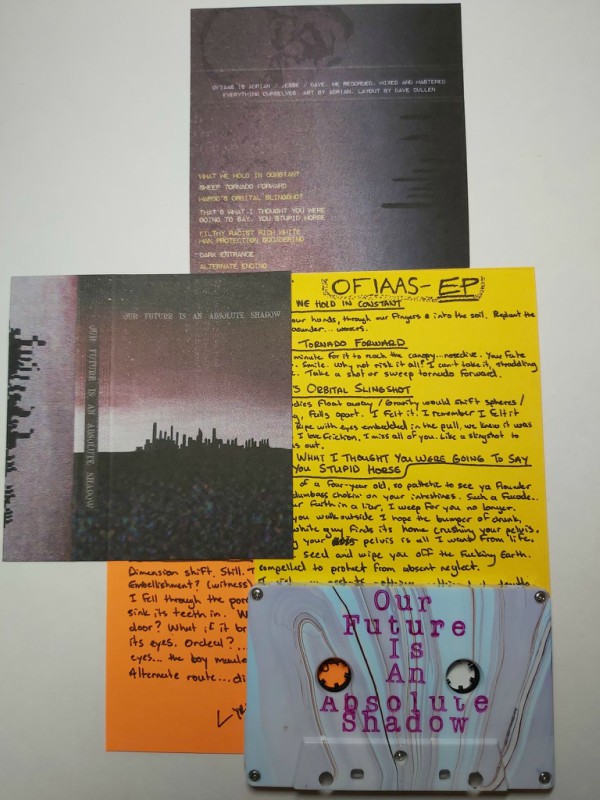 OFIAAS IS ADRIAN / JESSE / DAVE. WE RECORDED, MIXED AND MASTERED
EVERYTHING OURSELVES. ART BY ADRIAN. LAYOUT BY DAVE CULLEN
WHAT WE HOLD IN CONSTANT
SWEEP TORNADO FORWARD
ORBITAL SLINGSHOT
THAT'S WHAT I THOUGHT YOU WERE
GOING TO SAY, YOU STUPID HORSE
FILTHY RACIST RICH WHITE
MAN PROTECTION
DARK ENTRANCE
ALTERNATE ENDING
OUR FUTURE IS AN ABSOLUTE SHADOW
OUR FUTURE IS AN ABSOLUTE SHADOW
OFIAAS-EP
WE HOLD IN CONSTANT
our hands, through our fingers & into the soil. Replant the
TORNADO FORWARD
minute for it to reach the canopy... nosedive. Your fate
Smile. Why not risk it all? I can't take it, straddling
Take a shot or sweep tornado forward.
S ORBITAL SLINGSHOT
dies float away / Gravity would shift spheres /
Falls apart. I felt it. I remember I felt it
Ripe with eyes embedded in the pull, we knew it was
I love friction, I miss all of you. Like a slingshot to
s out.
WHAT I THOUGHT YOU WERE GOING TO SAY
YOU STUPID HORSE
of a four-year old, so pathetic to see ya flounder
dumbass chokin' on your intestines. Such a facade..
ur faith in a liar, I weep for you no longer.
you walk outside I hope the bumper of drunk,
white guy finds its home crushing your pelvis.
your pelvis is all I want from life.
seed and wipe you off the fucking Earth.
compelled to protect from absent neglect.
Dimension shift. Still. T
Embellishment? (witness)
I fell through the por
sink its teeth in. W
door? What if it br
its eyes. Ordeal?...
eyes... the boy
Alternate route... di
Our
Future
Is
An
Absolute
Shadow